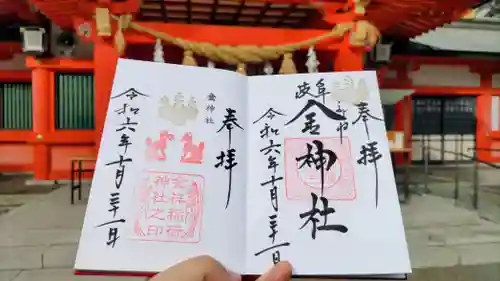 奉拝
岐阜
金神社
令和六年十月三十一日
奉拝
金神社
玄祥稲荷
神社之印
令和六年十月三十一日